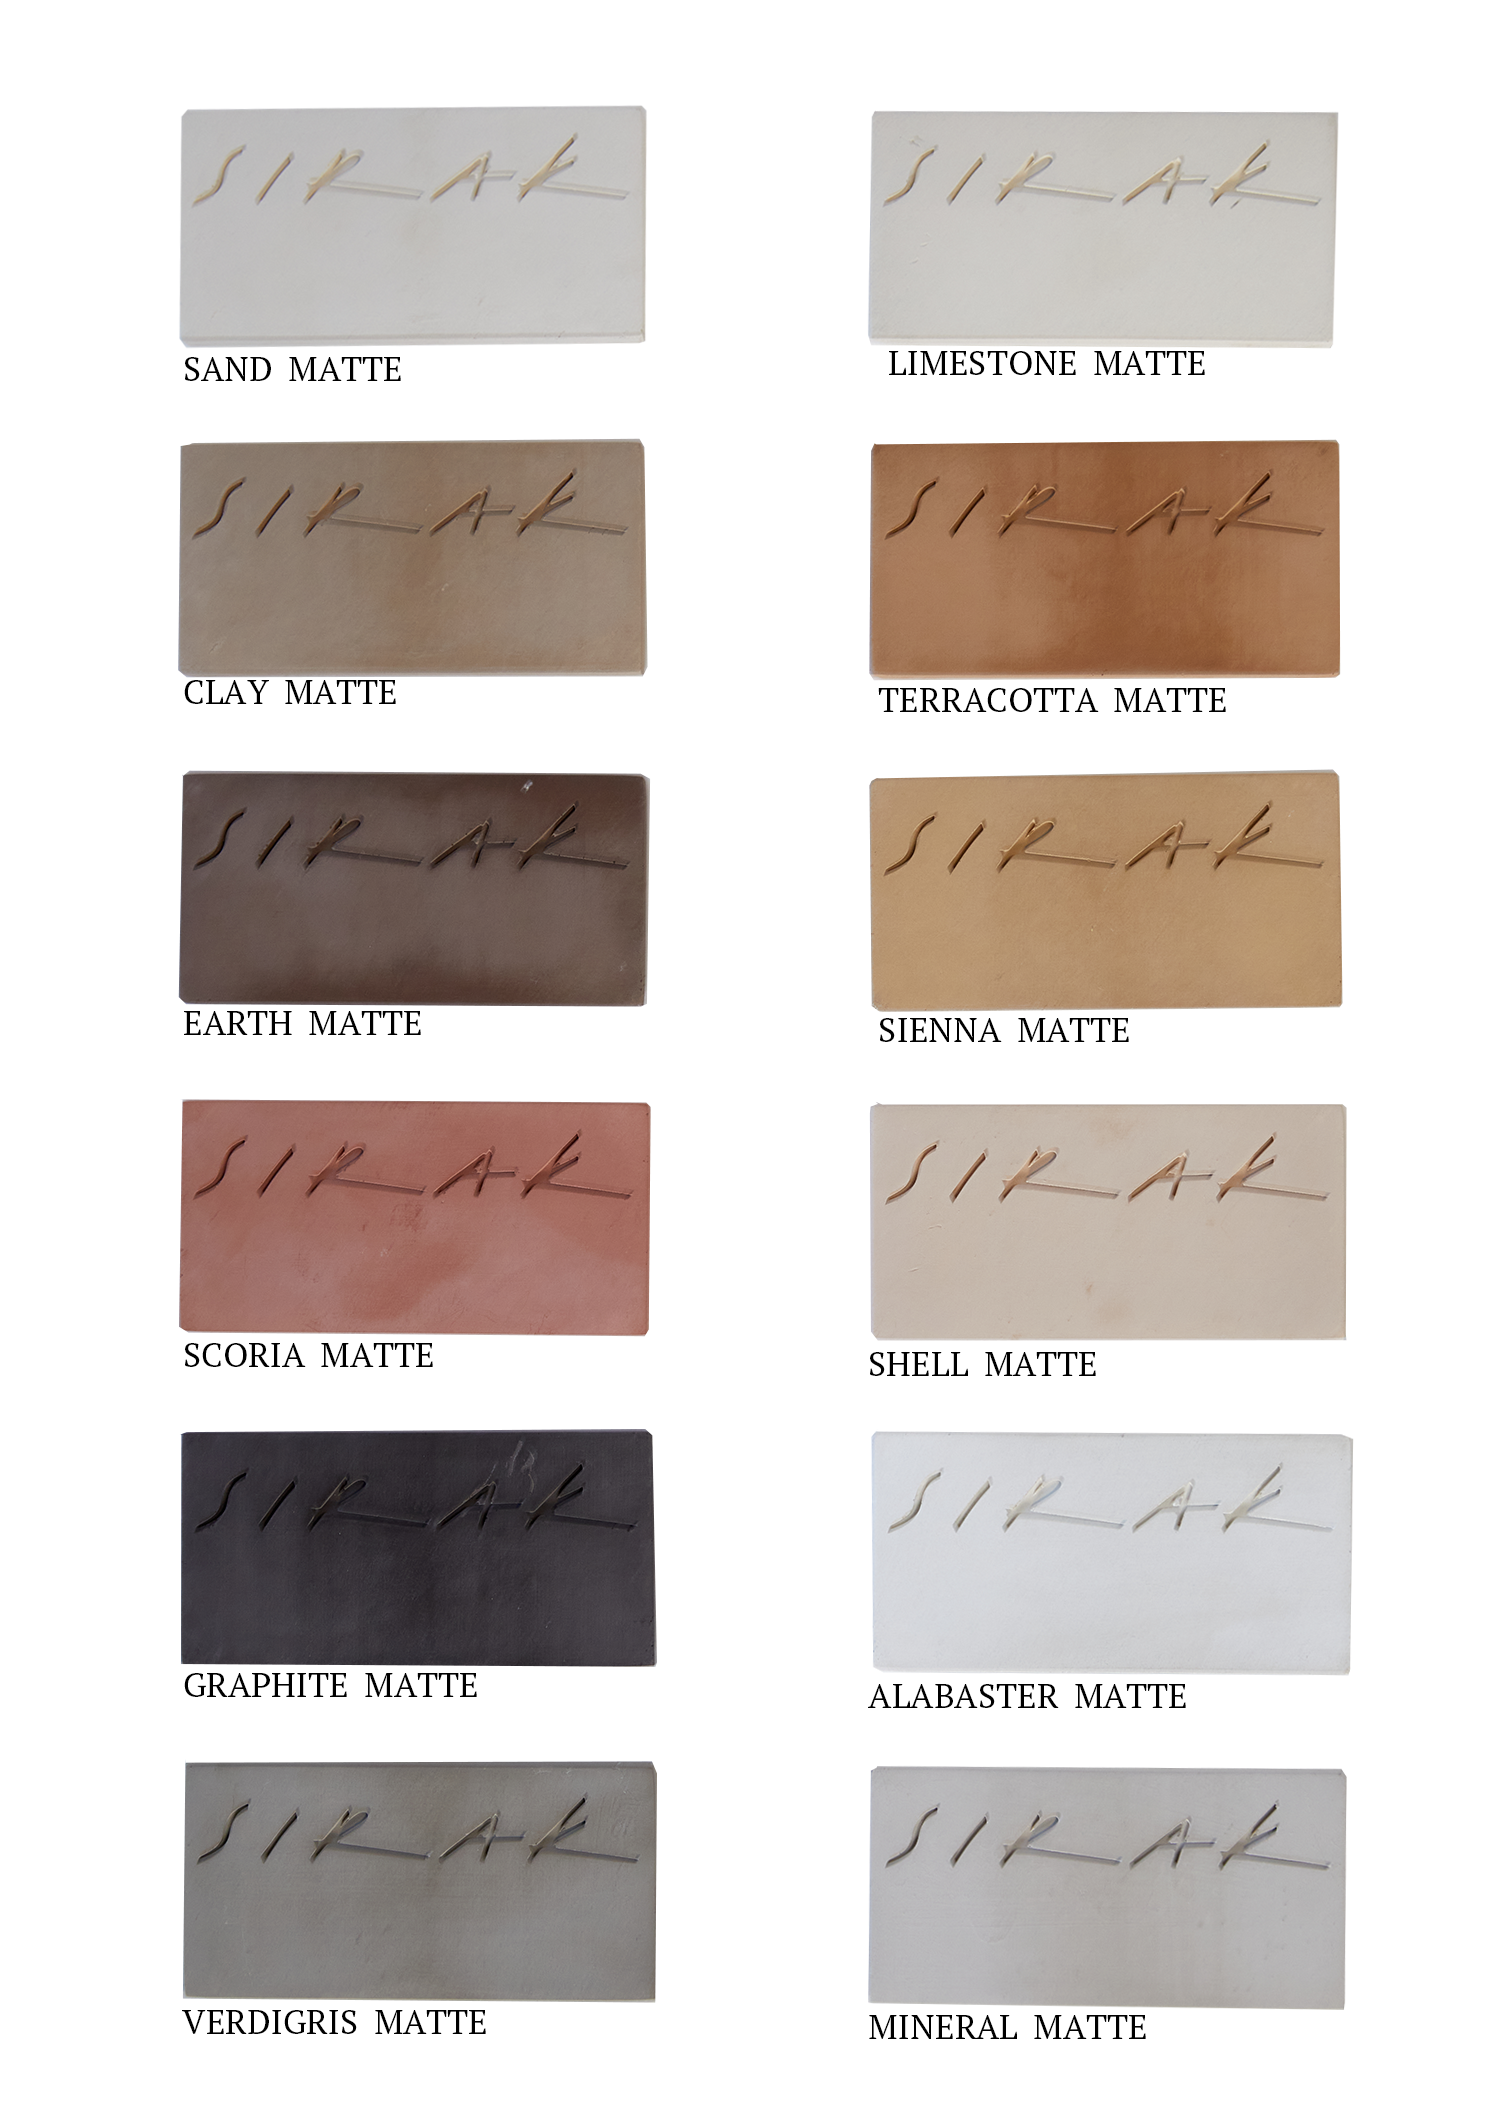 SIRAK
SAND MATTE
SIRAK
LIMESTONE MATTE
SIRAK
CLAY MATTE
SIRAK
TERRACOTTA MATTE
SIRAK
EARTH MATTE
SIRAK
SIENNA MATTE
SIRAK
SCORIA MATTE
SIRAK
SHELL MATTE
SIRAK
GRAPHITE MATTE
SIRAK
ALABASTER MATTE
SIRAK
VERDIGRIS MATTE
SIRAK
MINERAL MATTE